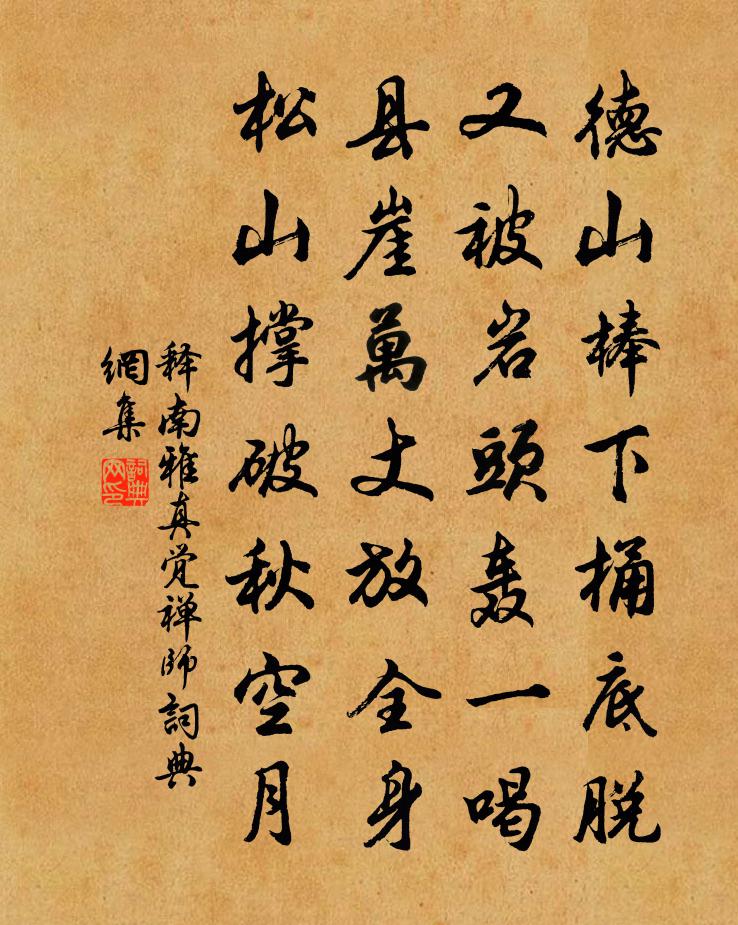 德山棒下桶底脱
又被岩頭轰一喝
县崖萬丈放全身
松山撑破秋空月
释南雅真觉禅師詞典
網集
詞典
网印